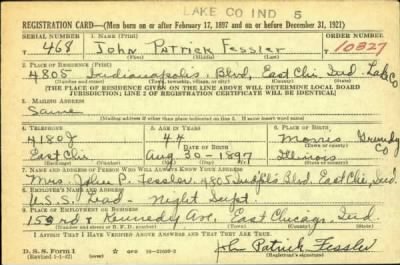 LAKE CO IND 5
REGISTRATION CARD—(Men born on or after February 17, 1897 and on or before December 31, 1921)
SERIAL NUMBER 1. NAME (Print) ORDER NUMBER
468 John Patrick Fessler 10327
(First) (Middle) (Last)
2. PLACE OF RESIDENCE (Print)
4805 Indianapolis Blvd, East Chi. Ind. Lake Co
(Number and street) (Town, township, village, or city) (County) (State)
(THE PLACE OF RESIDENCE GIVEN ON THE LINE ABOVE WILL DETERMINE LOCAL BOARD
JURISDICTION; LINE 2 OF REGISTRATION CERTIFICATE WILL BE IDENTICAL)
3. MAILING ADDRESS
Same
(Mailing address if other than place indicated on line 2. If same insert word same)
4. TELEPHONE 5. AGE IN YEARS 6. PLACE OF BIRTH
4180J 44 Morris Grundy Co
DATE OF BIRTH (Town or county)
East Chi Aug 30-1897 Illinois
(Exchange) (Number) (Mo.) (Day) (Yr.) (State or country)
7. NAME AND ADDRESS OF PERSON WHO WILL ALWAYS KNOW YOUR ADDRESS
Mrs. John P. Fessler 4805 Ind'pl's Blvd. East Chi, Ind.
8. EMPLOYER'S NAME AND ADDRESS
U.S.S. Lead - Night Supt.
9. PLACE OF EMPLOYMENT OR BUSINESS
153rd & Kennedy Ave, East Chicago, Ind.
(Number and street or R. F. D. number) (Town) (County) (State)
I AFFIRM THAT I HAVE VERIFIED ABOVE ANSWERS AND THAT THEY ARE TRUE.
D. S. S. Form 1
(Revised 1-1-42) GPO 16—21630-2 John Patrick Fessler